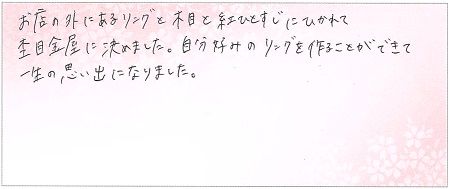 お店の外にあるリングと木目と紅ひとすじにひかれて
杢目金屋に決めました。自分好みのリングを作ることができて
一生の思い出になりました。